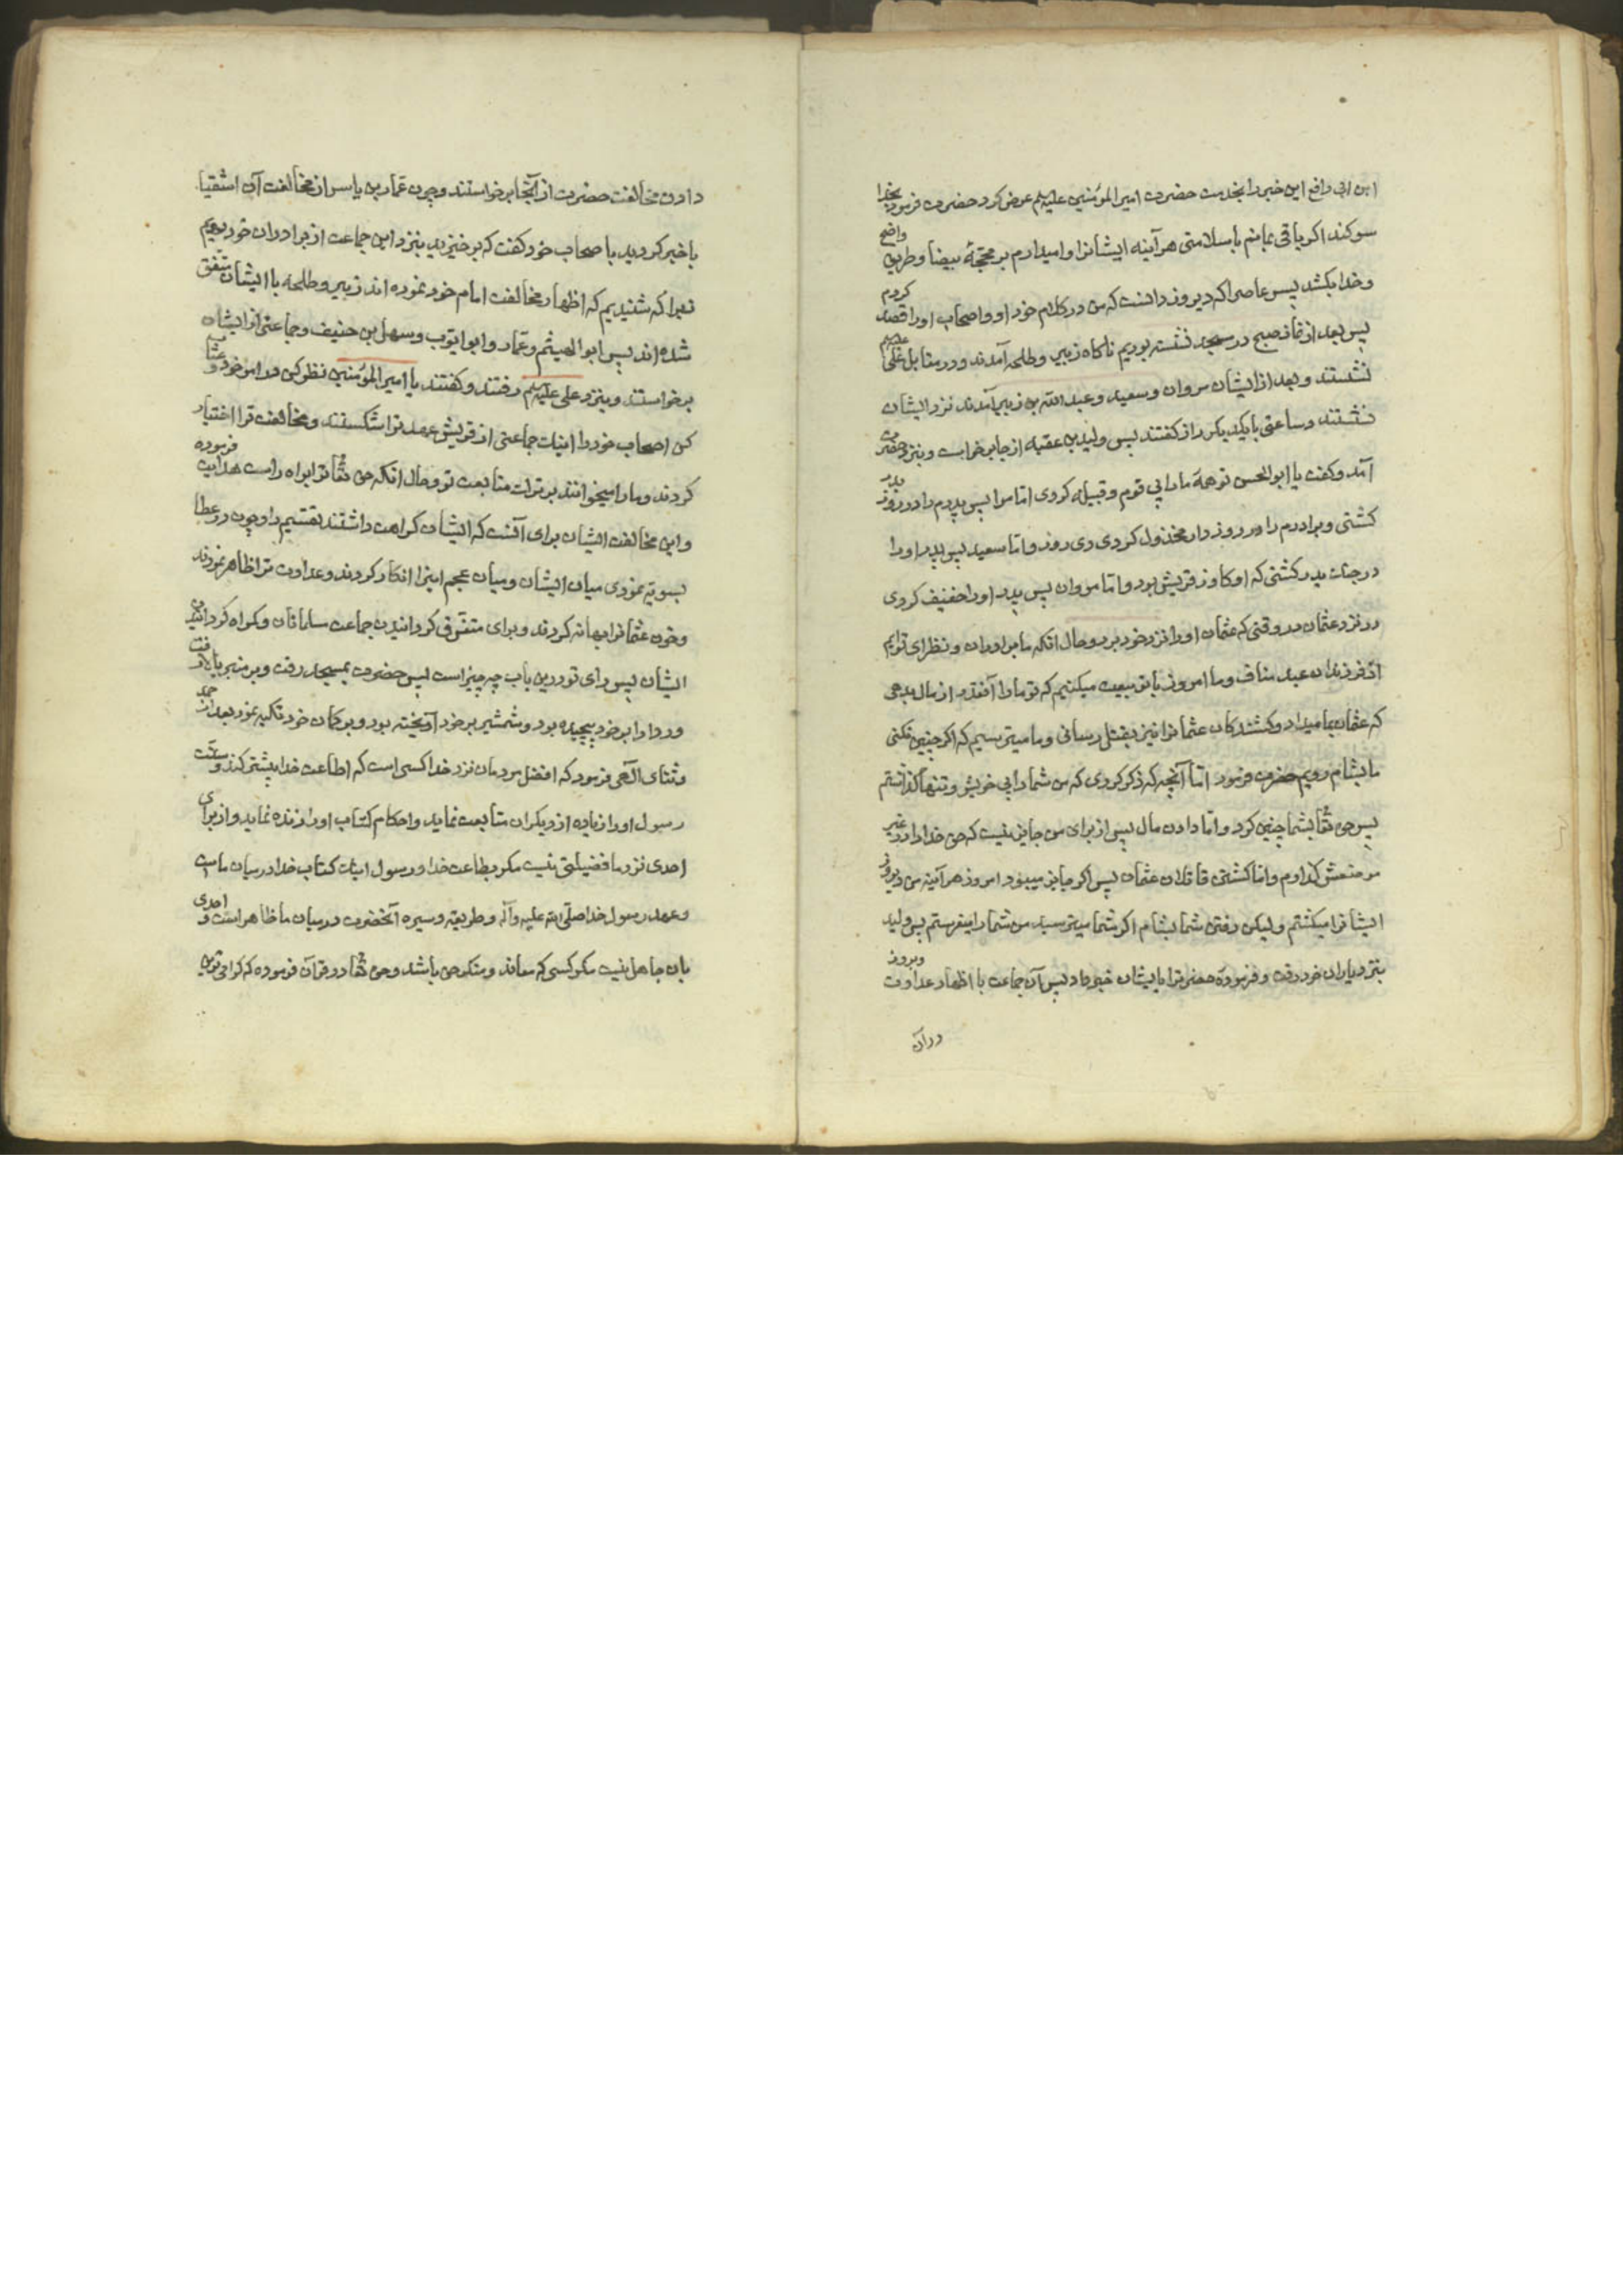 ابن ابی رافع این خبر را بخدمت حضرت امیر المؤمنین علیه سلم عرض کرد حضرت فرمود بخدا
سوکند اکر باقی بمانم باسلامتی هر آینه ایشانرا وامیدارم بر محجّهٔ بیضا و طریق واضح
وخدا بکشد پسر عاص را که دیروز دانست که من در کلام خود او واصحاب او را قصد کردم
پس بعد از نماز صبح در مسجد نشسته بودیم ناکاه زبیر وطلحه آمدند ودر مقابل علی علیه سلم
نشستند وبعد از ایشان مروان وسعید وعبد الله بن زبیر آمدند نزد ایشان
نشستند وساعتی بایکدیکر راز کفتند پس ولید بن عقبه از جا برخاست وبنزد حضرت
آمد وکفت یا ابو الحسن تو همهٔ ما را بی قوم وقبیله کردی امّا مرا پس پدرم را در روز بدر
کشتی وبرادرم را در روز دار مخذول کردی دی روز وامّا سعید پس پدر او را
در جنك بدر کشتی که او کاو نر قریش بود وامّا مروان پس پدر او را خفیف کردی
در نزد عثمان در وقتی که عثمان او را نزد خود برد وحال انکه ما برادران ونظرای توایم
از فرزندان عبد مناف وما امروز با تو بیعت میکنیم که تو ما را آنقدر از مال بدهی
که عثمان بما میداد وکشندکان عثمانرا نیز بقتل رسانی وما میترسیم که اکر چنین نکنی
ما بشام رویم حضرت فرمود امّا آنچه که ذکر کردی که من شما را بی خویش وتنها کذاشتم
پس حق تعا بشما چنین کرد وامّا دادن مال پس از برای من جایز نیست که حق خدا را در غیر
موضعش کذارم وامّا کشتن قاتلان عثمان پس اکر جایز میبود امروز هر آینه من دیروز
ایشانرا میکشتم ولیکن رفتن شما بشام اکر شما میترسید من شما را میفرستم پس ولید
بنزد یاران خود رفت وفرمودهٔ حضرترا بایشان خبر داد پس آن جماعت با اظهار عداوت وبروز
در آن
دادن مخالفت حضرت از آنجا برخواستند وچون عمّار بن یاسر از مخالفت آن اشقیا
با خبر کردید باصحاب خود کفت که برخیزید بنزد این جماعت از برادران خود برویم
زیرا که شنیدیم که اظهار مخالفت امام خود نموده اند زبیر وطلحه با ایشان متّفق
شده اند پس ابو الهیثم وعمّار وابو ایّوب وسهل بن حنیف وجماعتی از ایشان
برخواستند وبنزد علی علیه سلم رفتند وکفتند یا امیر المؤمنین نظر کن در امر خود وعتاب
کن اصحاب خود را اینك جماعتی از قریش عهد ترا شکستند ومخالفت ترا اختیار
کردند وما را میخوانند بر ترك متابعت تو وحال انکه حق تعا ترا براه راست هدایت فرموده
واین مخالفت ایشان برای آنست که ایشان کراهت داشتند تقسیم را وچون در عطا
بسویّه نمودی میان ایشان ومیان عجم اینرا انکار کردند وعداوت ترا ظاهر نمودند
وخون عثمانرا بهانه کردند وبرای متفرّق کردانیدن جماعت مسلمانان وکمراه کردانیدن
ایشان پس رای تو در این باب چه چیز است پس حضرت بمسجد رفت وبر منبر بالا رفت
وردا را بر خود پیچیده بود وشمشیر بر خود آویخته بود وبر کمان خود تکیه نمود بعد از حمد
وثنای الهی فرمود که افضل مردمان نزد خدا کسی است که اطاعت خدا بیشتر کند وسنّت
رسول او را زیاده از دیکران متابعت نماید واحکام کتاب او را زنده نماید واز برای
احدی نزد ما فضیلتی نیست مکر بطاعت خدا ورسول اینك کتاب خدا در میان ماست
وعهد رسول خدا صلّی الله علیه وآله وطریقه وسیرهٔ آنحضرت در میان ما ظاهر است واحدی
بان جاهل نیست مکر کسی که معاند ومنکر حق باشد وحق تعا در قرآن فرموده که کرامی ترین